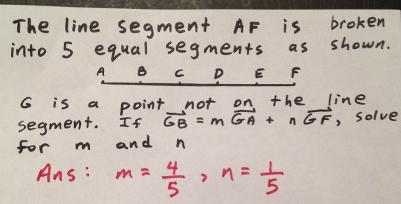 The line segment AF is broken
into 5 equal segments as shown.
A B C D E F
G is a point not on the line
segment. If GB = m GA + n GF, solve
for m and n
Ans: m = 4/5, n = 1/5